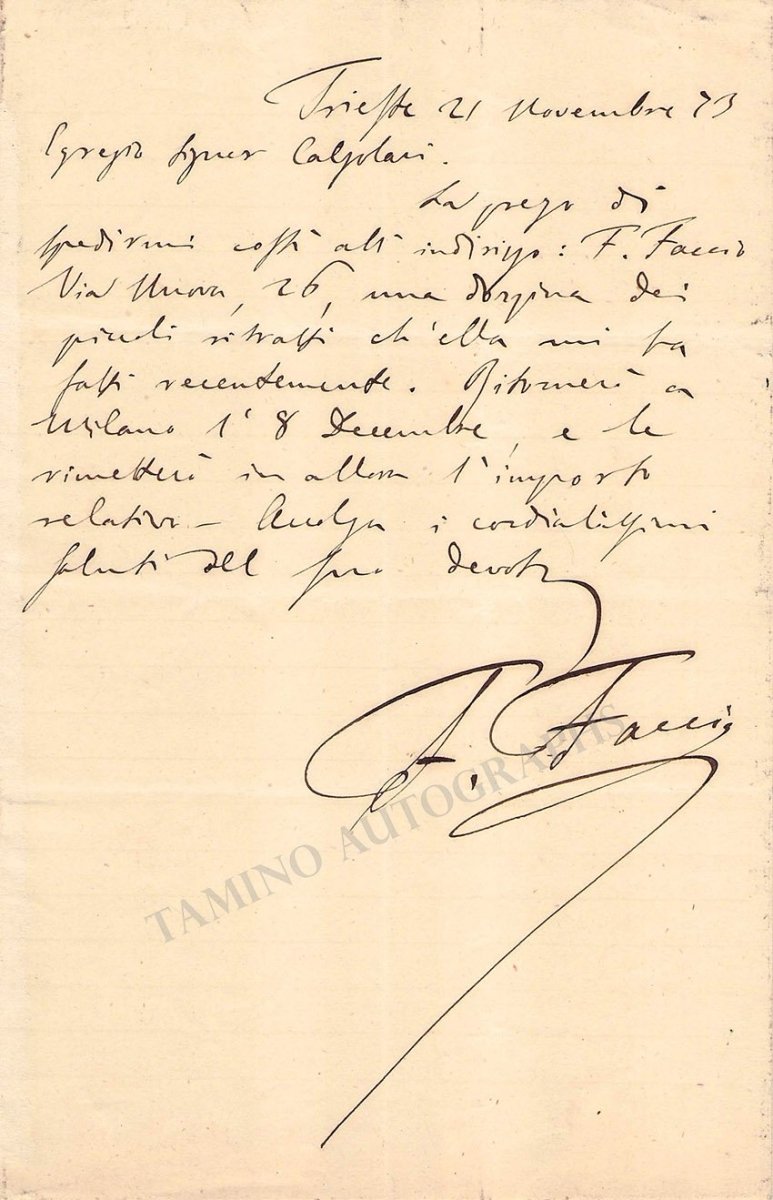 Trieste 21 Novembre 73
Egregio Signor Calzolari.
La prego di
spedirmi costì all'indirizzo: F. Faccio
Via Nuova, 26, una dozzina dei
piccoli ritratti ch'ella mi ha
fatti recentemente. Ritornerò a
Milano l'8 Decembre, e le
rimetterò in allora l'importo
relativo - Accolga i cordialissimi
saluti del suo devoto
F. Faccio
TAMINO AUTOGRAPHS